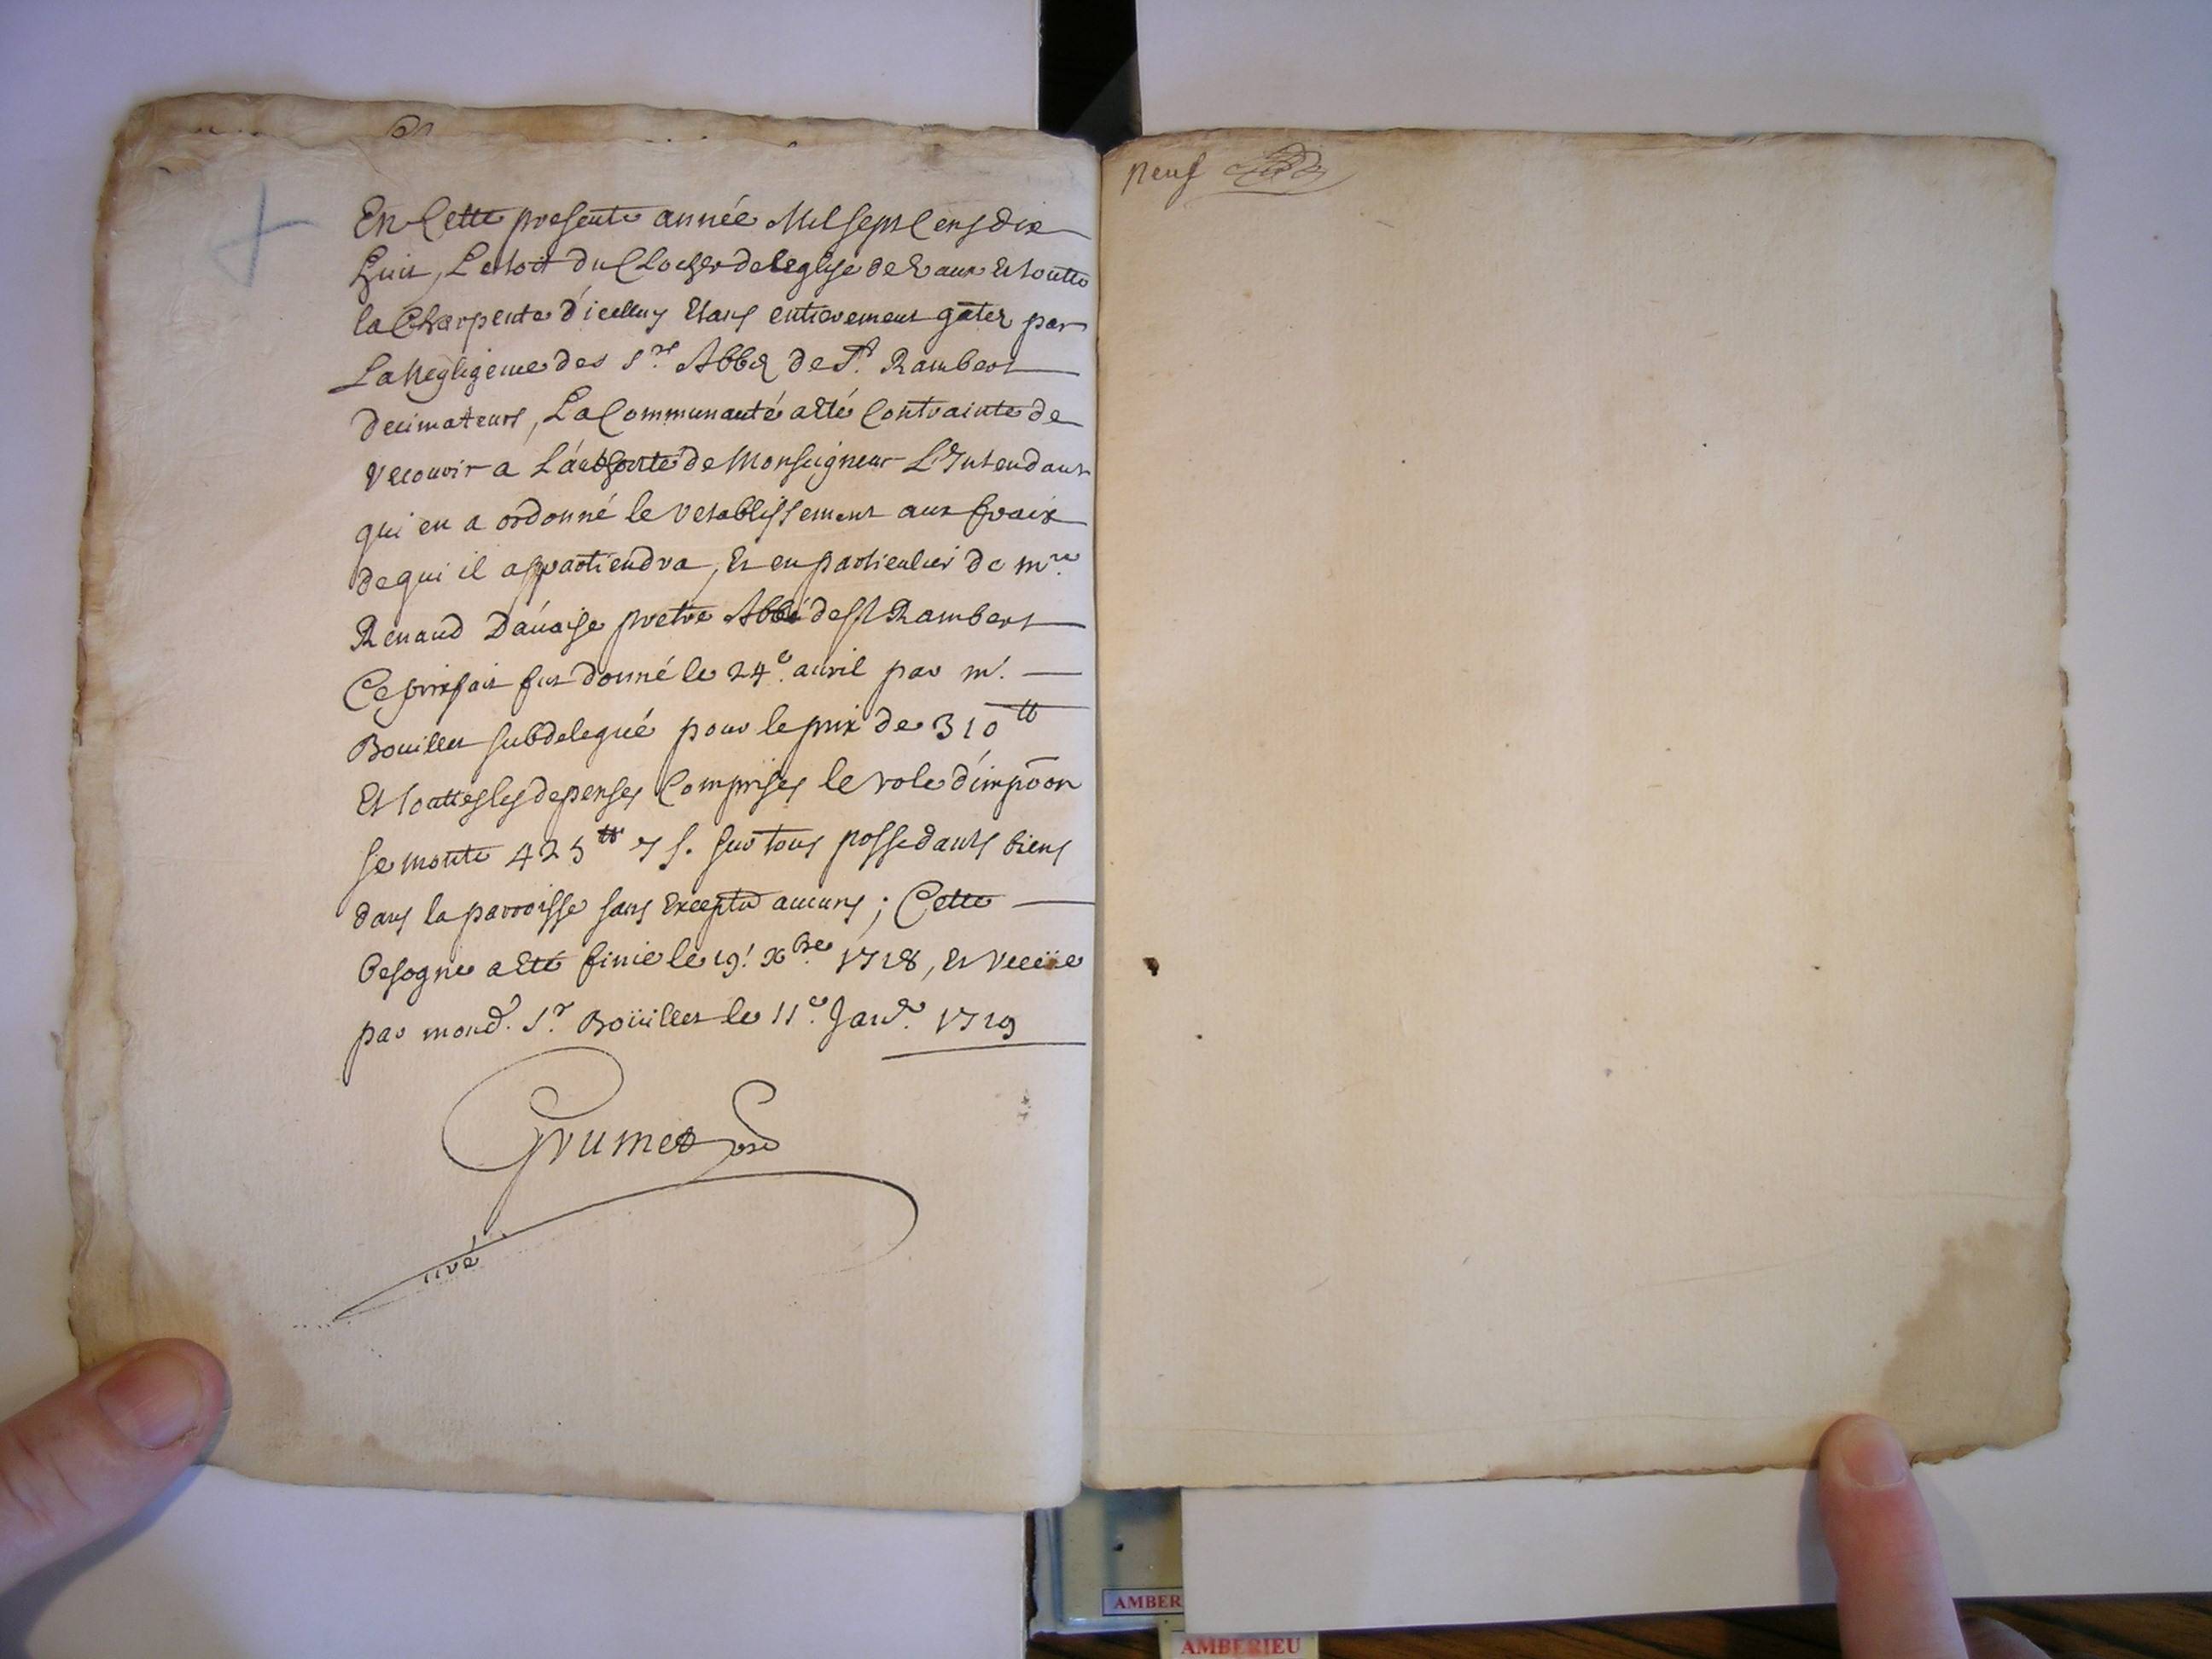 En Cette presente année Mil sept Cens dix
huit, Le toit du Clocher de leglise de Vaux Et toutte
la Charpente d'icelluy Etant entierement gátez par
La Negligence des Srs. Abbez de St. Rambert
Decimateurs, La Communauté a été Contrainte de
recourir a L'authorité de Monseigneur L'Intendant
qui en a ordonné le retablissement aux fraix
de qui il appartiendra, Et en particulier de mre.
Renaud Davaise pretre Abbé de St Rambert
Ce prixfait fut donné le 24e. avril par mr.
Bouillet subdelegué pour le prix de 310 tt
Et touttes les depenses Comprises le role d'impōon
se monte 425 tt 7 s. sur tous possedants biens
dans la parroisse sans Excepter aucuns ; Cette
Besogne a Eté finie le 19e. Xbre. 1718, Et receüe
par mond. Sr. Boüillet le 11e. Janvr. 1719
Grumet
neuf
AMBER
AMBERIEU